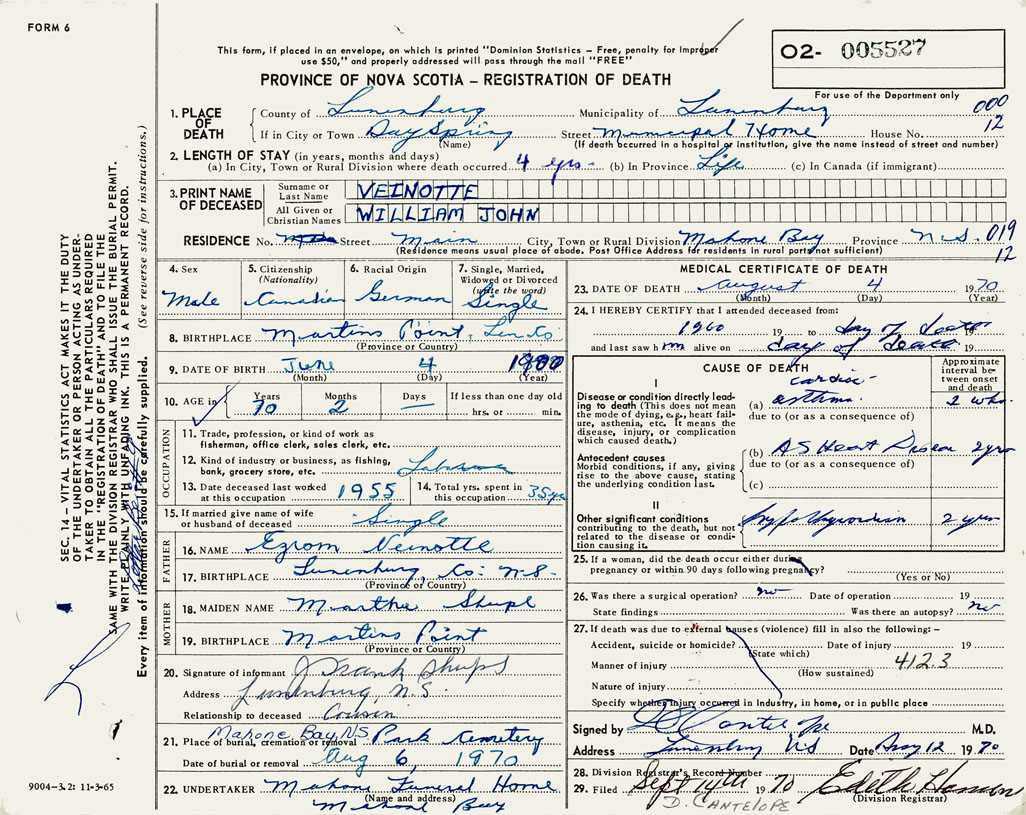 FORM 6
This form, if placed in an envelope, on which is printed "Dominion Statistics – Free, penalty for improper
use $50," and properly addressed will pass through the mail "FREE"
PROVINCE OF NOVA SCOTIA – REGISTRATION OF DEATH
O2- 005527
For use of the Department only
000
12
1. PLACE OF DEATH County of Lunenburg Municipality of Lunenburg
If in City or Town DaySpring Street Municipal Home House No.
(Name) (If death occurred in a hospital or institution, give the name instead of street and number)
2. LENGTH OF STAY (in years, months and days)
(a) In City, Town or Rural Division where death occurred 4 yrs- (b) In Province Life (c) In Canada (if immigrant)
3. PRINT NAME OF DECEASED Surname or Last Name VEINOTTE
All Given or Christian Names WILLIAM JOHN
RESIDENCE No. Street Main City, Town or Rural Division Mahone Bay Province N.S. 019
(Residence means usual place of abode. Post Office Address for residents in rural parts not sufficient) 12
4. Sex Male
5. Citizenship (Nationality) Canadian
6. Racial Origin German
7. Single, Married, Widowed or Divorced (write the word) Single
8. BIRTHPLACE Martins Point, Lun Co
(Province or Country)
9. DATE OF BIRTH June 4 1900
(Month) (Day) (Year)
10. AGE in Years 70 Months 2 Days — If less than one day old hrs. or min.
OCCUPATION
11. Trade, profession, or kind of work as fisherman, office clerk, sales clerk, etc.
12. Kind of industry or business, as fishing, bank, grocery store, etc. Labourer
13. Date deceased last worked at this occupation 1955
14. Total yrs. spent in this occupation 35 yrs
15. If married give name of wife or husband of deceased Single
FATHER
16. NAME Ezrom Veinotte
17. BIRTHPLACE Lunenburg, Co: N-S-
(Province or Country)
MOTHER
18. MAIDEN NAME Martha Shupe
19. BIRTHPLACE Martins Point
(Province or Country)
20. Signature of informant J Frank Shupe
Address Lunenburg N.S.
Relationship to deceased Cousin
21. Place of burial, cremation or removal Mahone Bay, N.S. Park Cemetery
Date of burial or removal Aug 6, 1970
22. UNDERTAKER Mahone Funeral Home
(Name and address)
Mahone Bay
MEDICAL CERTIFICATE OF DEATH
23. DATE OF DEATH August 4 1970
(Month) (Day) (Year)
24. I HEREBY CERTIFY that I attended deceased from:
1960 19 to day of death 19
and last saw him alive on day of death 19
CAUSE OF DEATH
Approximate interval between onset and death
I
Disease or condition directly leading to death (This does not mean the mode of dying, e.g., heart failure, asthenia, etc. It means the disease, injury, or complication which caused death.)
(a) cardiac- asthma 2 wks.
due to (or as a consequence of)
Antecedent causes
Morbid conditions, if any, giving rise to the above cause, stating the underlying condition last.
(b) AS Heart Disease 2 yrs
due to (or as a consequence of)
(c)
II
Other significant conditions contributing to the death, but not related to the disease or condition causing it.
2 yrs
25. If a woman, did the death occur either during pregnancy or within 90 days following pregnancy?
(Yes or No)
26. Was there a surgical operation? no Date of operation 19
State findings Was there an autopsy? no
27. If death was due to external causes (violence) fill in also the following: –
Accident, suicide or homicide? Date of injury 19
(State which)
Manner of injury 412.3
(How sustained)
Nature of injury
Specify whether injury occurred in Industry, in home, or in public place
Signed by D C Cantelope M.D.
Address Lunenburg NS Date Aug 12 1970
28. Division Registrar's Record Number
29. Filed Sept 14th 1970 Edith
D. CANTELOPE (Division Registrar)
SEC. 14 – VITAL STATISTICS ACT MAKES IT THE DUTY
OF THE UNDERTAKER OR PERSON ACTING AS UNDER-
TAKER TO OBTAIN ALL THE PARTICULARS REQUIRED
IN THE "REGISTRATION OF DEATH" AND TO FILE THE
SAME WITH THE DIVISION REGISTRAR WHO SHALL ISSUE THE BURIAL PERMIT.
WRITE PLAINLY WITH UNFADING INK. THIS IS A PERMANENT RECORD.
Every item of information should be carefully supplied. (See reverse side for instructions.)
9004-3.2: 11-3-65